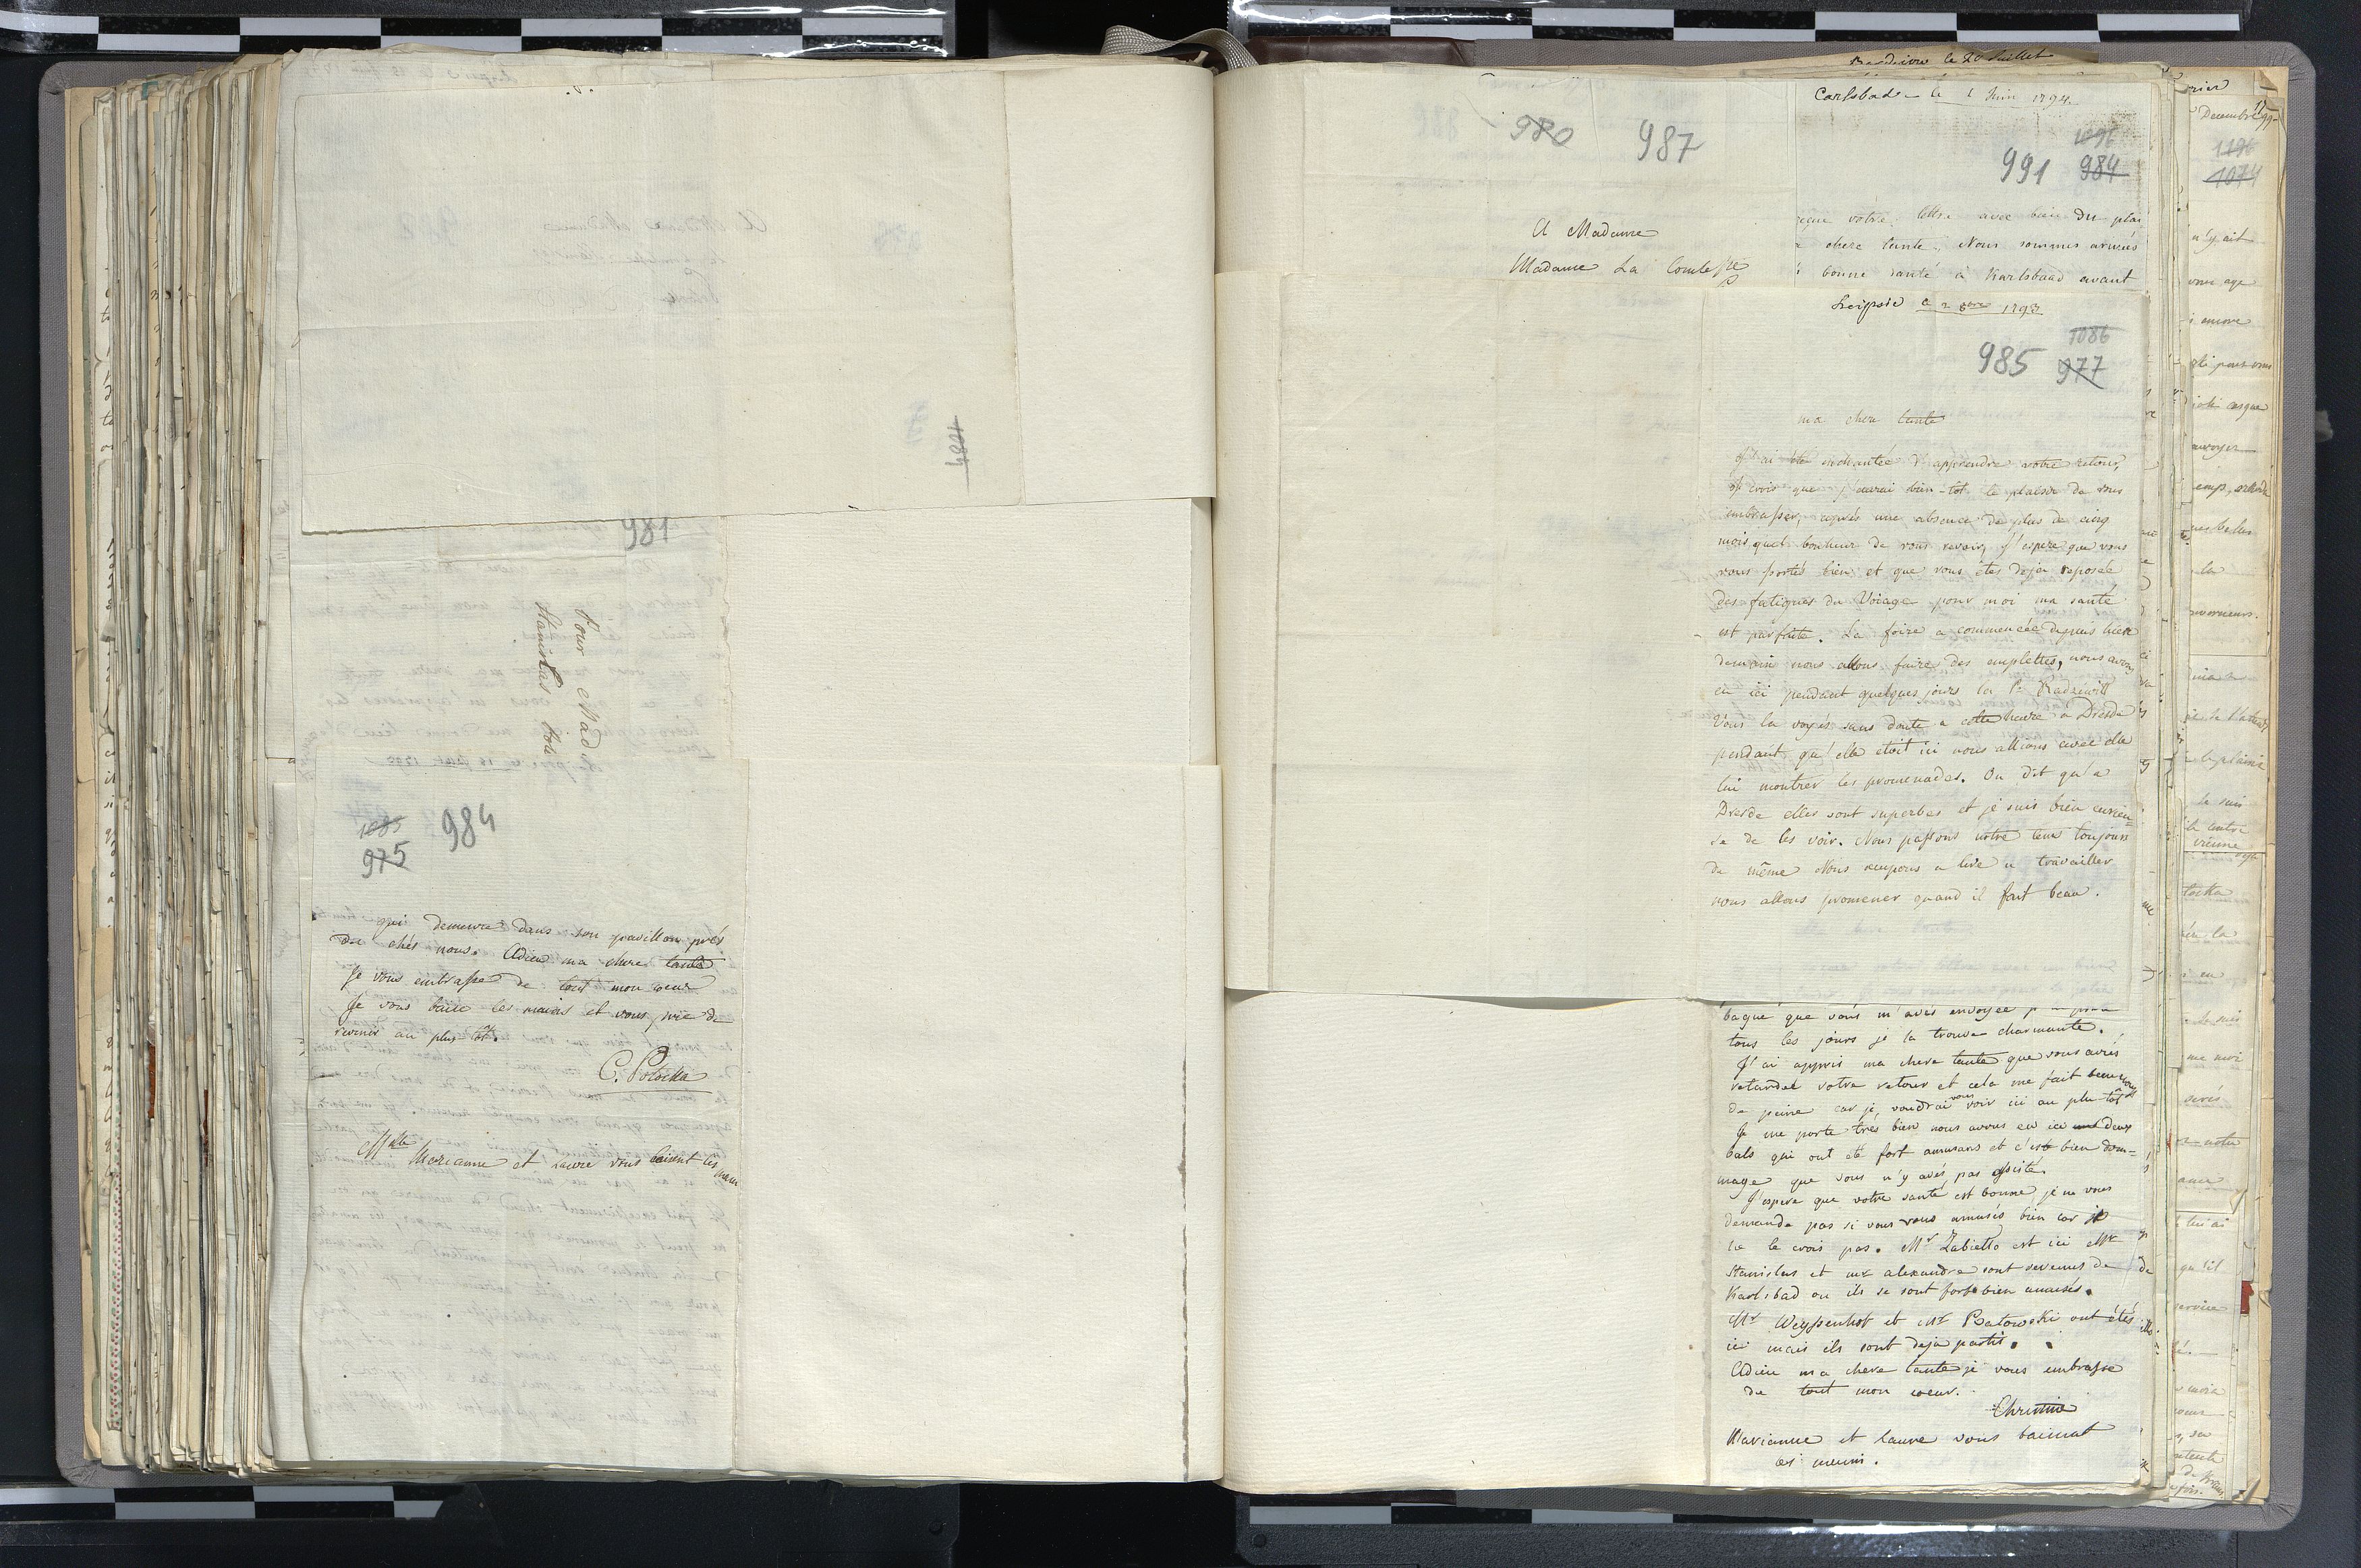 981
Pour Mad
Stanislas
984
1085
975
qui demeure dans son pavillon près
de chés nous. Adieu ma chere tante
Je vous embrasse de tout mon coeur
Je vous baise les mains et vous prie de
revenir au plus tôt.
C. Potocka
Mlle Marianne et Laure vous baisent les mains
1084
Carlsbad le 1 Juin 1794
980
987
991
984
A Madame
Madame La Comtesse
votre lettre avec bien du plai
chere tante. Nous sommes arrivés
bonne santé à Karlsbaad avant
Leipsic le 2 8bre 1793
1086
985
977
ma chere tante
J'ai été enchantée d'apprendre votre retour,
Je crois que j'aurai bien-tôt le plaisir de vous
embrasser, après une absence de plus de cinq
mois quel bonheur de vous revoir, j'espere que vous
vous portés bien et que vous êtes deja reposée
des fatigues du Voiage pour moi ma santé
est parfaite. La foire a commencée depuis hier
demain nous allons faire des emplettes, nous avons
eu ici pendant quelques jours la Pe Radziwill
Vous la voyés sans doute a cette heure à Dresde
pendant qu'elle etoit ici nous allions avec elle
lui montrer les promenades. On dit qu'a
Dresde elles sont superbes et je suis bien curieu=
se de les voir. Nous passons notre tems toujours
de même Nous occupons a lire a travailler
nous allons promener quand il fait beau.
bague que vous m'avés envoyée
tous les jours je la trouve charmante.
J'ai appris ma chere tante que vous avés
retardée votre retour et cela me fait beaucoup
de peine car je voudrai vous voir ici au plu tôt
Je me porte très bien nous avons eu ici deux
bals qui ont été fort amusans et c'est bien dom=
mage que vous n'y avés pas assisté.
J'espere que votre santé est bonne, je ne vous
demande pas si vous vous amusés bien car je
ne le crois pas. Mr Zabiello est ici Mr
Stanislas et mr alexandre sont revenus de
Karlsbad ou ils se sont fort bien amusés.
Mr Weyssenhof et Mr Batowski ont étés
ici mais ils sont deja partis.
Adieu ma chere tante je vous embrasse
de tout mon coeur.
Christine
Marianne et laure vous baisent
les mains.
le 20 Juillet
Decembre
1196
1074